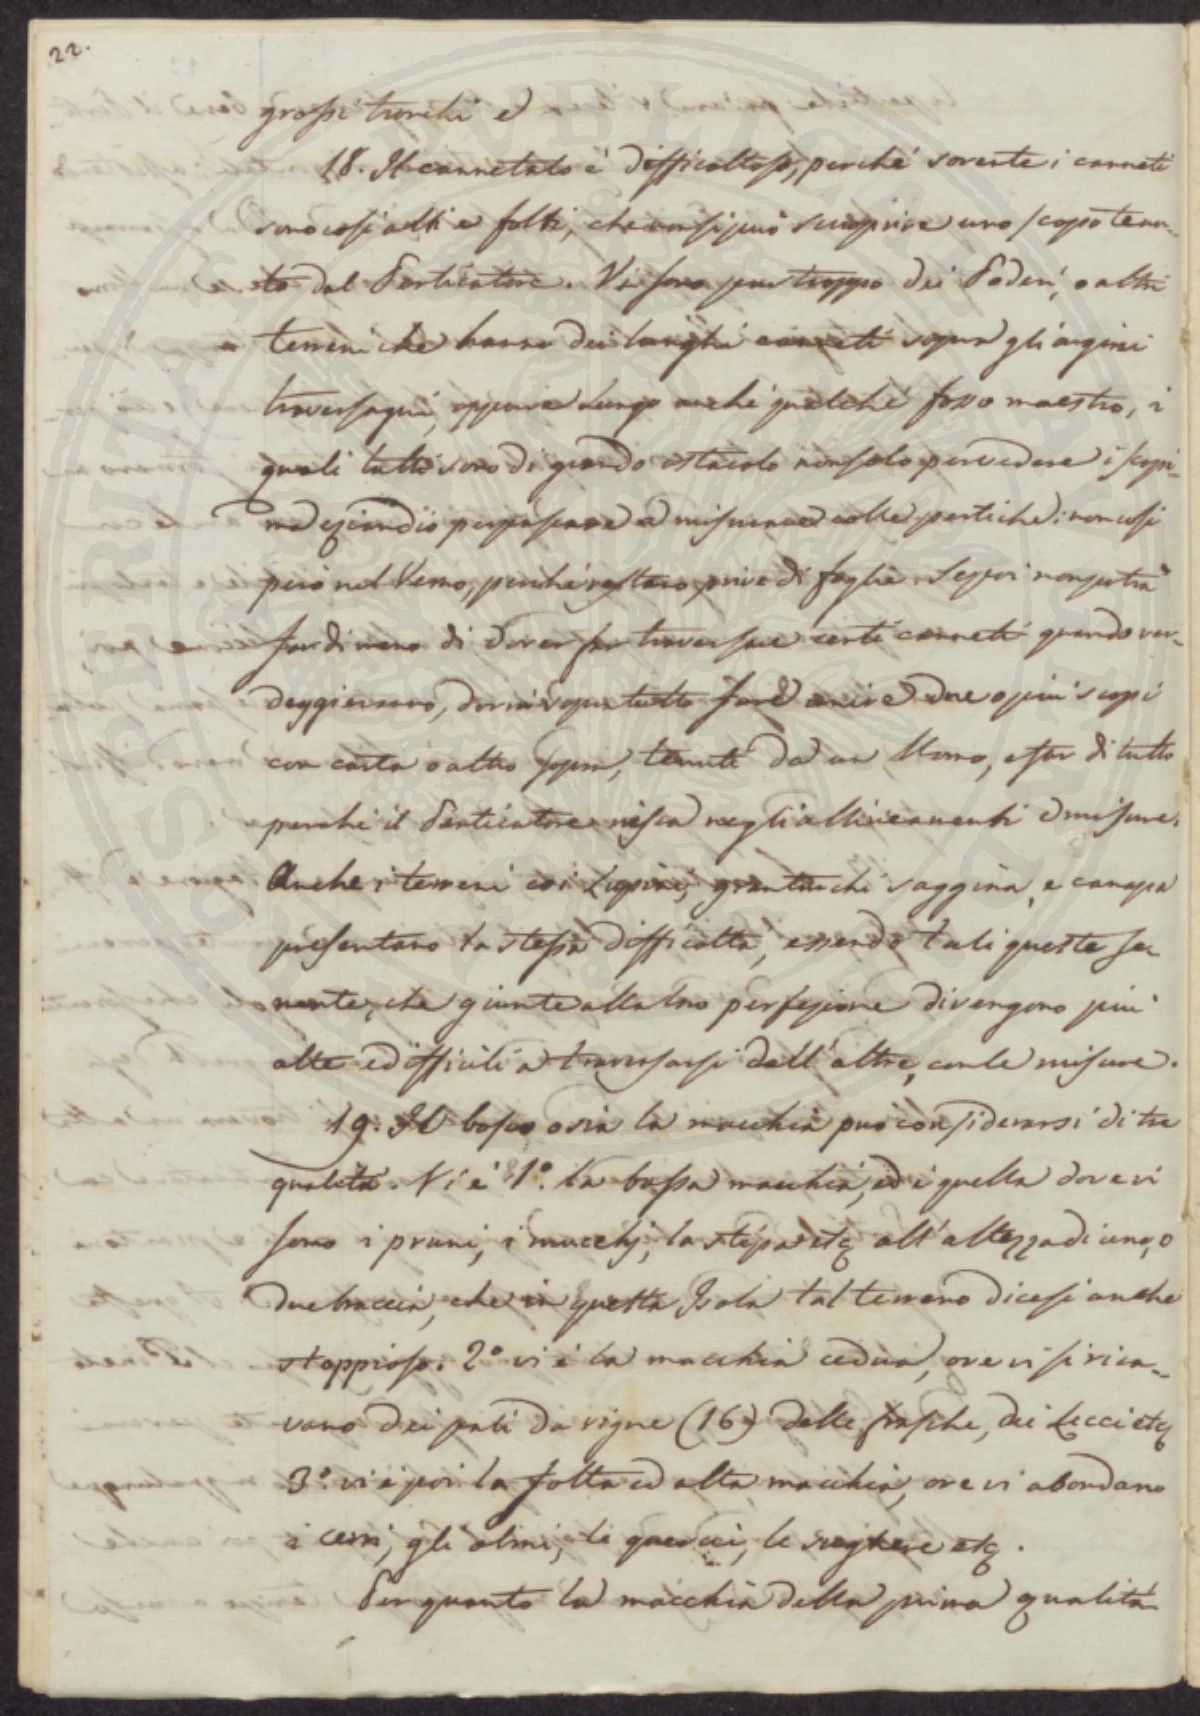 22.
grossi tronchi e
18. Il cannetato é difficoltoso, perché sovente i canneti
sono cosi alti e folti, che non si può scuoprire uno scopo tenu-
to dal Perticatore. Vi sono pur troppo dei Poderi, o altri
terreni che hanno dei lunghi canneti sopra gli argini
traversagni, oppure lungo anche qualche fosso maestro, i
quali tutti sono di grande ostacolo non solo per vedere i scopi
ma eziandio per passare a misurare colle pertiche: non cosi
però nel Verno, perché restano prive di foglie. Se poi non potrà
far di meno di dover far traversare certi canneti quando ver-
deggieranno, dovrà sopra tutto fare unire due o più scopi
con carta o altro sopra, tenuti da un Uomo, e far di tutto
perché il Perticatore riesca negli allineamenti e misure.
Anche i terreni coi Lupini, grantuschi saggina, e canapa
presentano la stessa difficoltà, essendo tali queste se-
mente, che giunte alla loro perfezione divengono più
alte e difficili a traversarsi dall'altre, con le misure.
19. Il bosco ossia la macchia può considerarsi di tre
qualità. Vi é 1º. la bassa macchia, ed é quella dove vi
sono i pruni, i mucchj, la stipa etc all'altezza di uno, o
due braccia, che in questa Isola tal terreno dicesi anche
stoppioso. 2º vi é la macchia cedua, ove vi si rica-
vano dei pali da vigne (16) delle frasche, dei Lecci etc
3º. vi é poi la folta ed alta macchia, ove vi abondano
i cerri, gli olmi, le querci, le sughere etc.
Per quanto la macchia della prima qualità